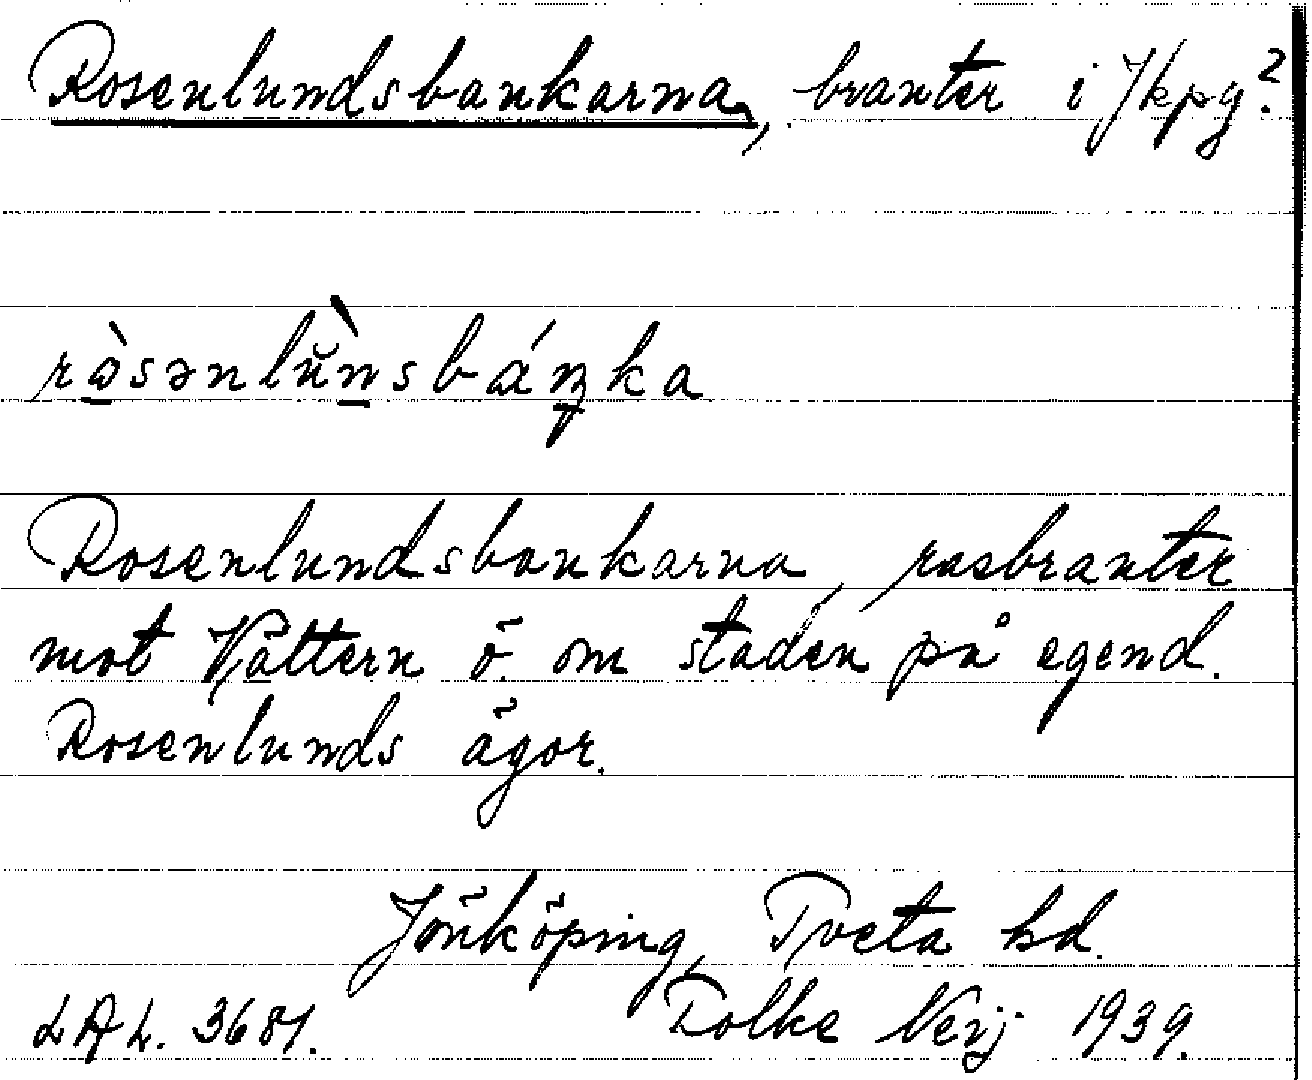 Rosenlundsbankarna, branter i Jkpg?
ràsənlùnsbáŋka
Rosenlundsbankarna, rasbranter
mot Vättern ö. om staden på egend.
Rosenlunds ägor.
Jönköping, Tveta hd.
LAL. 3681. Folke Neij 1939.